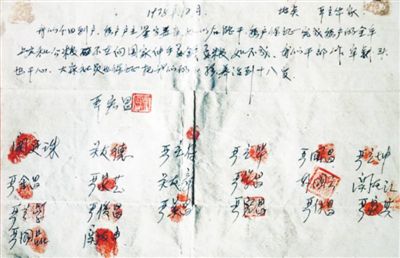 1978年12月 地点 严立华家
我们分田到户,每户户主签字盖章,如以后能干,每户保证完成每户的全年
上交和公粮,不在向国家伸手要钱要粮,如不成,我们干部作牢
也干心,大家社员也保证把我们的小孩养活到十八岁
严宏昌
关廷珠 关友德 严立符 严立华 严国昌 严立坤
严金昌 严家芝 关友章 严学昌 韩国云 关友江
严立学 严俊昌 严美昌 严宏昌 严付昌 严家其
严国品 关友申